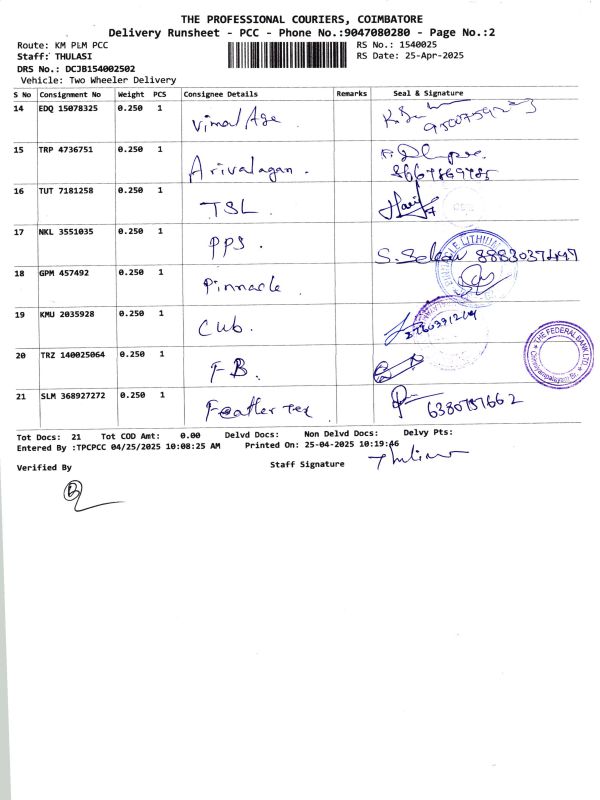 THE PROFESSIONAL COURIERS, COIMBATORE
Delivery Runsheet - PCC - Phone No.:9047080280 - Page No.:2
Route: KM PLM PCC
RS No.: 1540025
Staff: THULASI
RS Date: 25-Apr-2025
DRS No.: DCJB154002502
Vehicle: Two Wheeler Delivery
S No Consignment No Weight PCS Consignee Details Remarks Seal & Signature
14 EDQ 15078325 0.250 1 Vimal Age
15 TRP 4736751 0.250 1 Arivalagan.
16 TUT 7181258 0.250 1 TSL.
17 NKL 3551035 0.250 1 PPS.
18 GPM 457492 0.250 1 Pinnacle
19 KMU 2035928 0.250 1 Cub.
20 TRZ 140025064 0.250 1 FB.
THE FEDERAL BANK LTD.
21 SLM 368927272 0.250 1 Feather Tex
Tot Docs: 21 Tot COD Amt: 0.00 Delvd Docs: Non Delvd Docs: Delvy Pts:
Entered By :TPCPCC 04/25/2025 10:08:25 AM Printed On: 25-04-2025 10:19:46
Verified By
Staff Signature